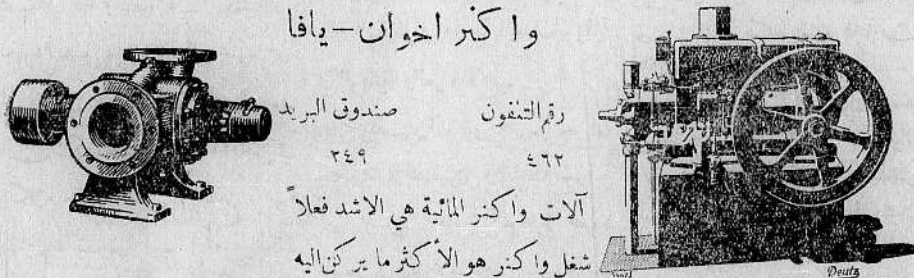 واكنر اخوان – يافا
رقم التلفون صندوق البريد
٤٦٢ ٢٤٩
آلات واكنر المائية هي الاشد فعلاً
شغل واكنر هو الأكثر ما يركن اليه
Deutz